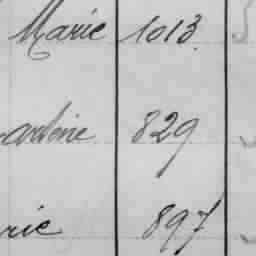 Marie 1013.
ardine 829
rie 897